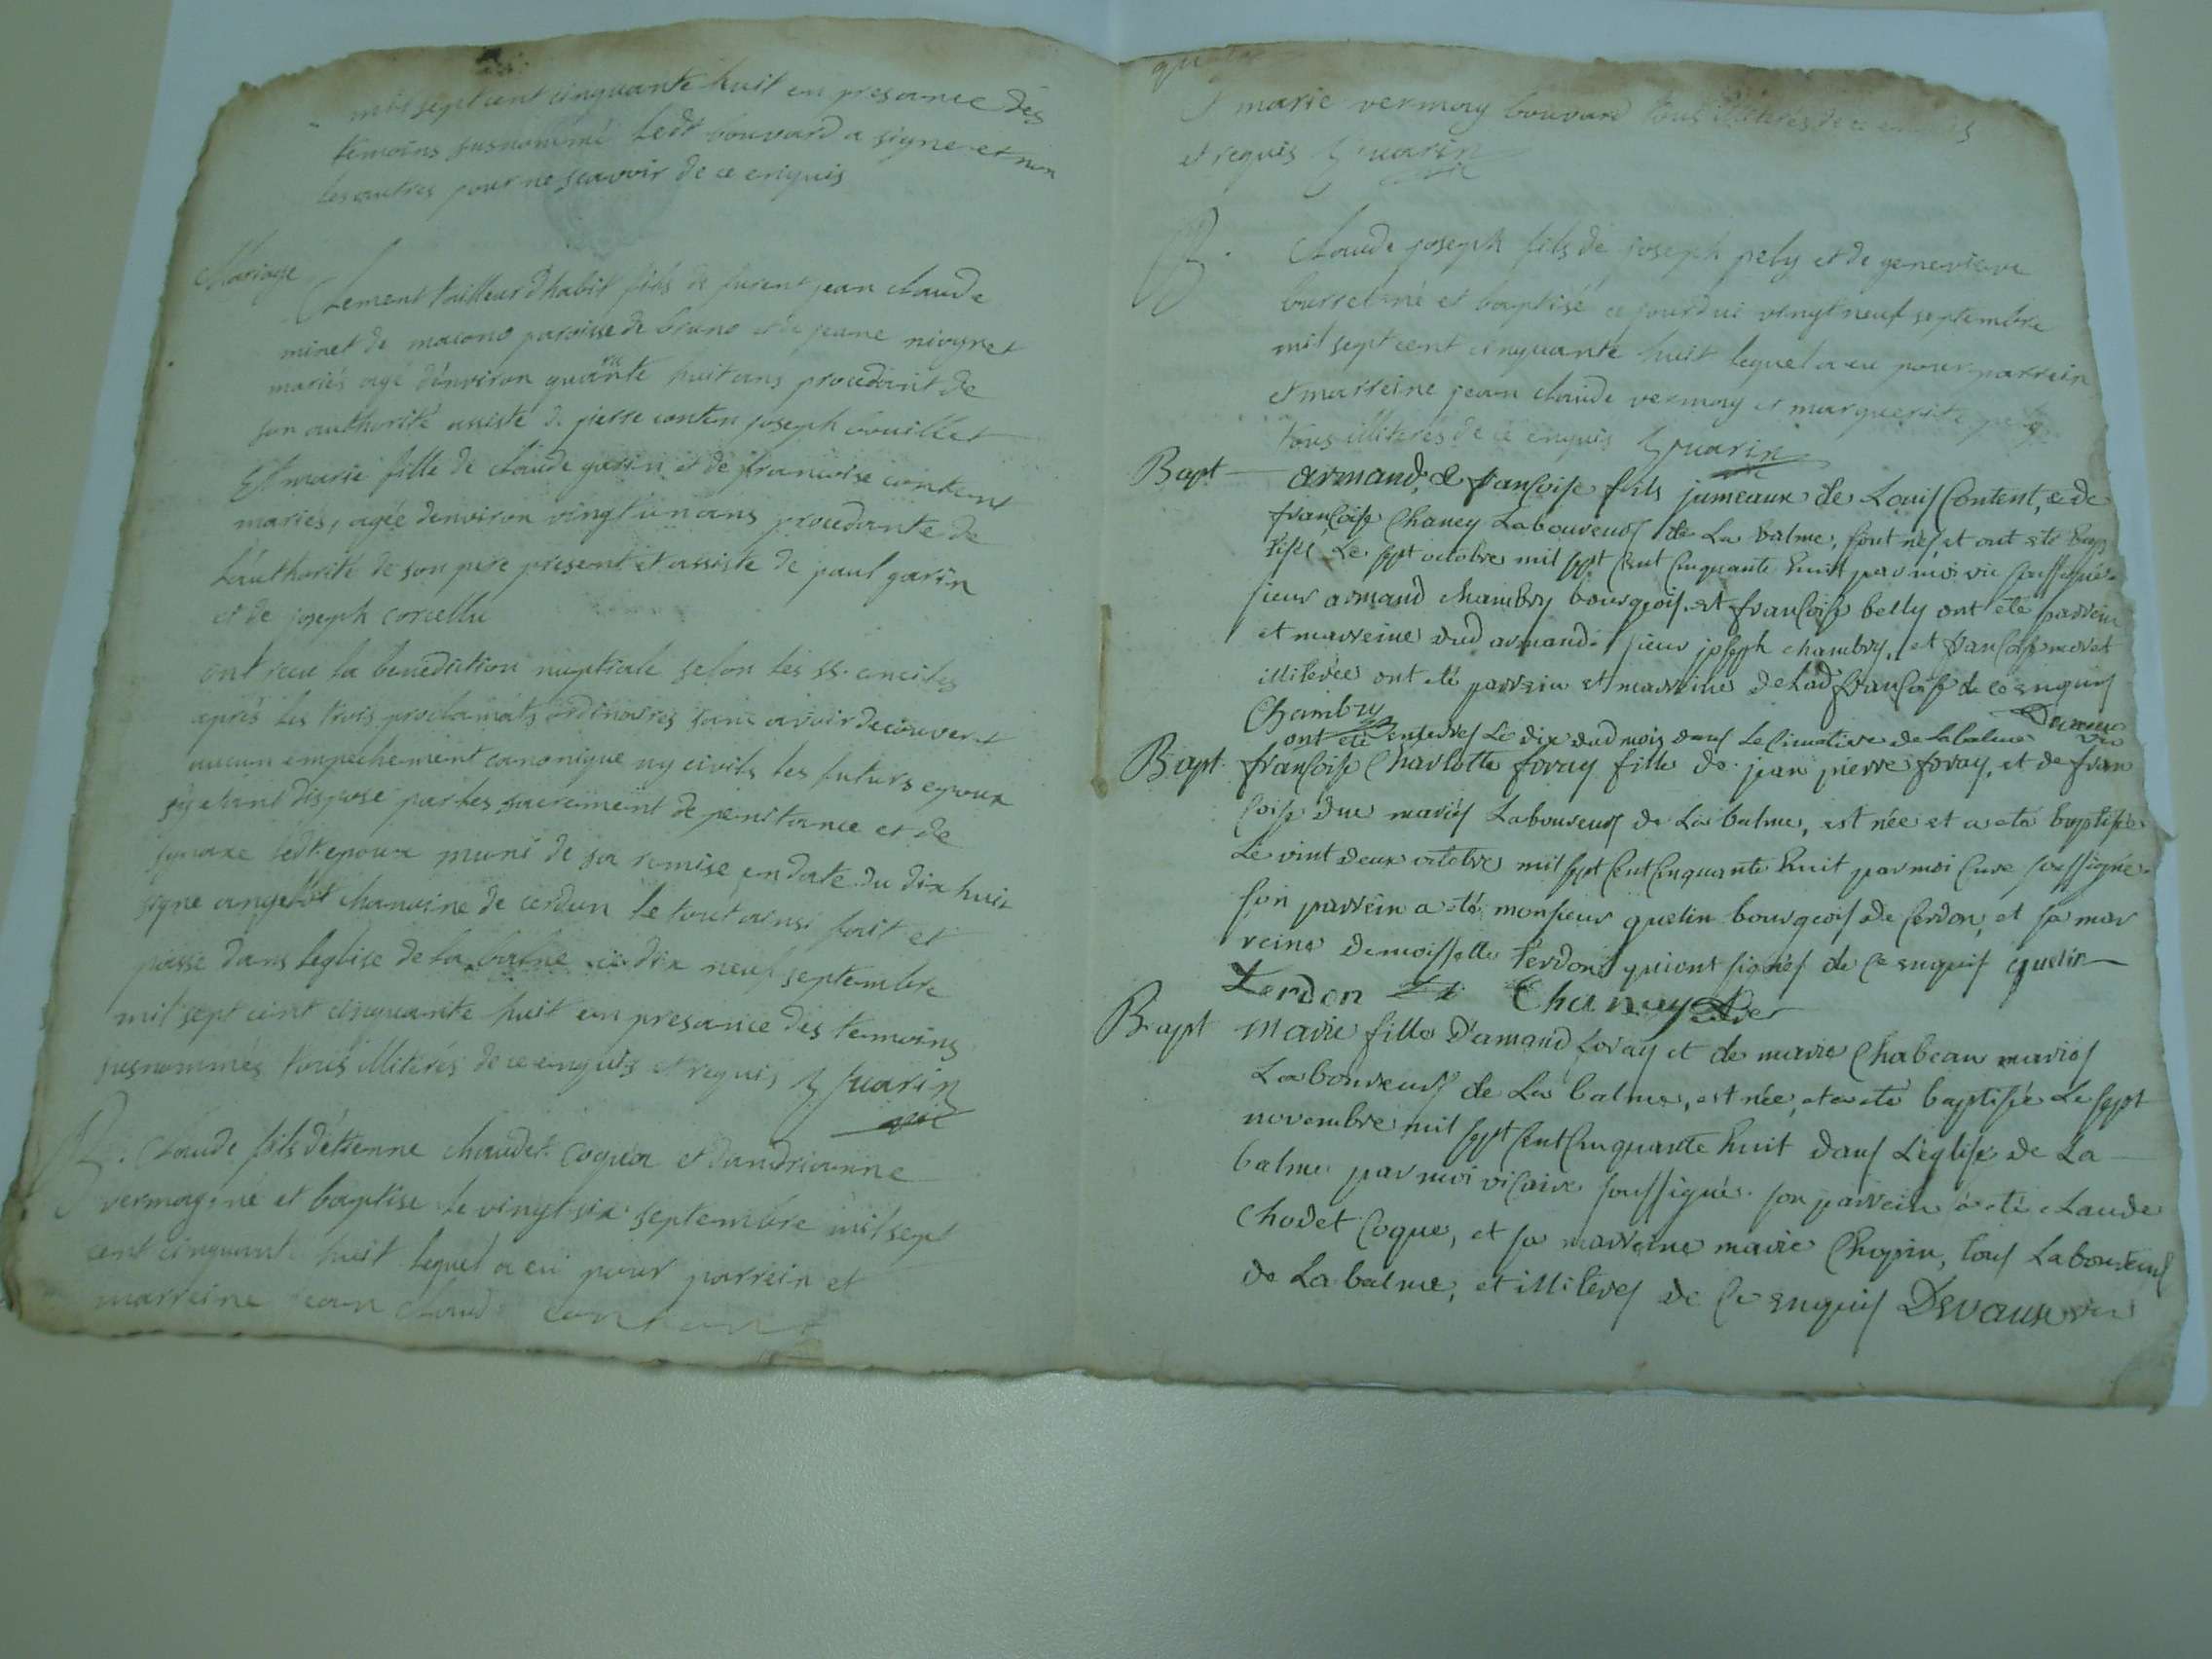 mil sept cent cinquante huit en presance des
temoins susnommé ledt bouvard a signe et non
les autres pour ne scavoir de ce enquis
Mariage
Clement tailleur dhabit fils de furent jean claude
minet de macono paroisse de brans et de jeane niogret
mariés agé d'environ quarante huit ans procedant de
son authorité assisté de pierre conten joseph bouillet
Et marie fille de claude garin et de francoise content
mariés, agée denviron vingt un ans procedante de
l'authorité de son pere present et assiste de paul garin
et de joseph corcellu
ont recu la benediction nuptiale selon les ss. conciles
après les trois proclamats ordinaires sans avoir decouvert
aucun empechement canonique ny civils les futurs epoux
sy etant disposé par les sacrement de penitance et de
synaxe ledt epoux muni de sa remise en date du dix huit
signe angelot chanoine de cerdon le tout ainsi fait et
passé dans leglise de la balme ce dix neuf septembre
mil sept cent cinquante huit en presance des temoins
susnommés tous illiterés de ce enquis et requis Guarin
vic
B. Claude fils détienne chaudet coquea et dandrianne
vermay né et baptise le vingt six septembre mil sept
cent cinquante huit lequel a eu pour parrein et
marreine jean claude contant
et marie vermay bouvard tous illiterés de ce enquis
et requis Guarin
vic
B. Claude joseph fils de joseph pely et de genevieve
burret né et baptisé ce jourdui vingt neuf septembre
mil sept cent cinquante huit lequel a eu pour parrein
et marreine jean claude vermay et marguerite pely
tous illiterés de ce enquis Guarin
vic
Bapt armand, & françoise fils jumeaux de Louis Content, & de
françoise Chaney Laboureurs de La balme, sont nés, et ont eté bap
tisés Le sept octobre mil sept cent cinquante huit par moi vic soussigné.
sieur armand chambry bourgeois et françoise belly ont été parrein
et marreine dud armand. sieur joseph chambry, et françoise moret
illiterée ont eté parrein et marreine de Lad françoise de ce enquis
Chambry
Devaux vic
ont eté enterrés Le dix dud mois dans Le Cimetiere de la balme
Bapt. françoise Charlotte foray fille de jean pierre foray, et de fran
çoise due mariés Laboureurs de La balme, est née et a eté baptisée
Le vint deux octobre mil sept cent cinquante huit par moi Curé soussigné.
son parrein a eté monsieur quelin bourgeois de Cerdon, et sa mar
reine demoisselle terdon qui ont signés de ce enquis quelin
terdon Chaney
Bapt Marie fille D'amand foray et de marie Chabeau mariés
Laboureurs de La balme, est née, et a eté baptisée Le sept
novembre mil sept cent cinquante huit dans L'église de La
balme par moi vicaire soussigné. son parrein a eté claude
Chodet Coque, et sa marreine marie Chopin, tous Laboureurs
de La balme, et illiterés de ce enquis Devaux vic